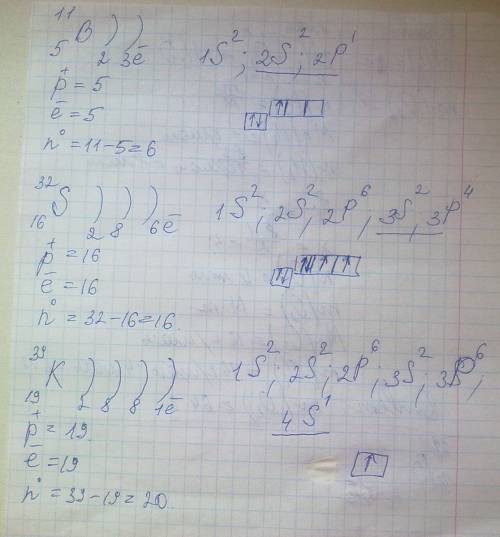 ¹¹₅B ) ) 2 3ē 1S²; 2S²; 2P¹
p⁺ = 5
ē = 5
↑↓ ↑
n° = 11-5=6
³²₁₆S ) ) ) 2 8 6ē 1S²; 2S²; 2P⁶; 3S², 3P⁴
p⁺ = 16
↑↓ ↑↓ ↑ ↑
ē = 16
n° = 32-16=16.
³⁹₁₉K ) ) ) ) 2 8 8 1ē 1S²; 2S²; 2P⁶; 3S², 3P⁶,
4S¹
p⁺ = 19.
ē = 19
↑
n° = 39-19=20.